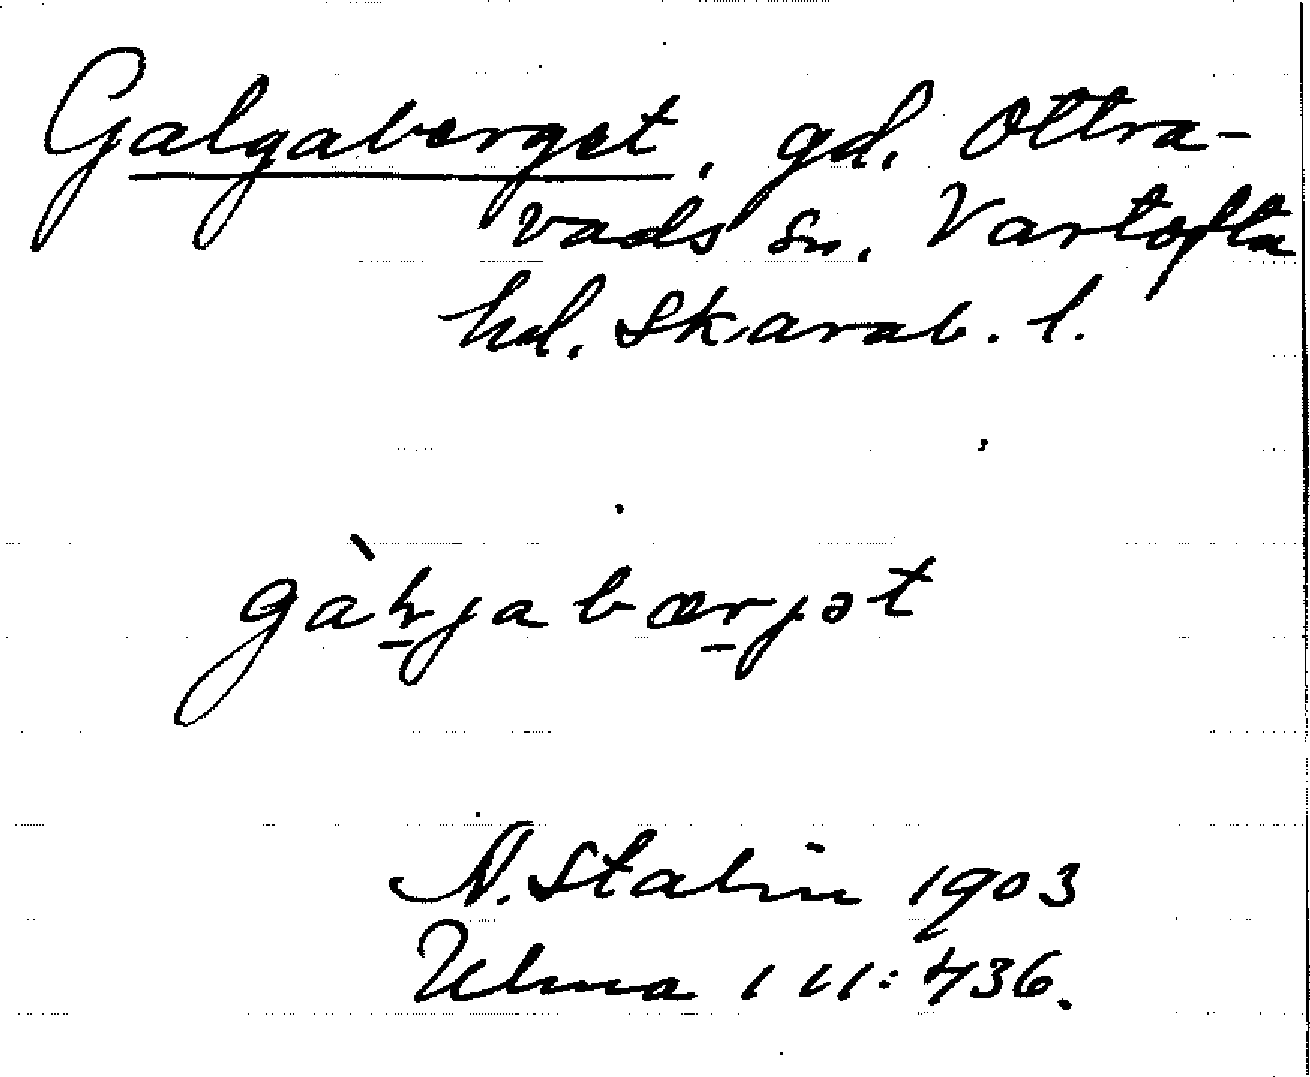 Galgaberget, gd. Ottra-
vads sn. Vartofta
hd. Skarab. l.
gàɫja bærjət
N. Stalin 1903
Ulma 111:436.